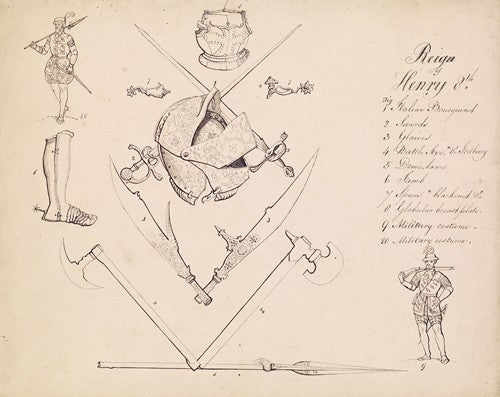 Reign
of
Henry 8th.
Fig
1 Italian Bourguinot
2 Swords
3 Glaives
4 Battle Axe,
5 Demi lance
6 Jamb
7 Spurs blackened &c.
8 Globular breast plate.
9 Military costume.
10. Military costume.
10
1
7
7
2
6
3
3
4
5
9